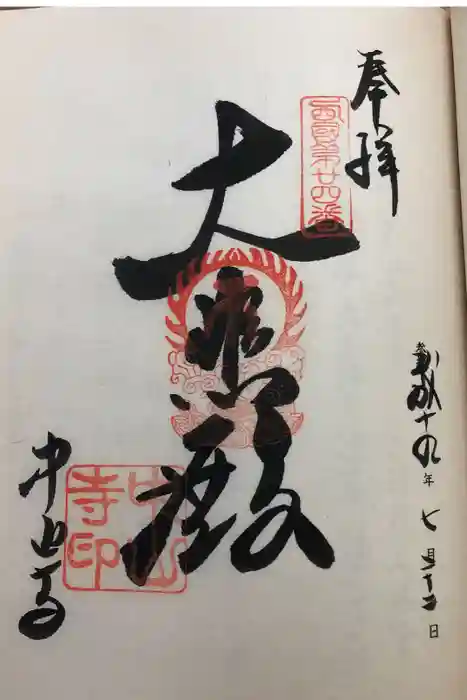 奉拝
西国第廿四番
大悲殿
中山寺
中山
寺印
成十九年七月十二日